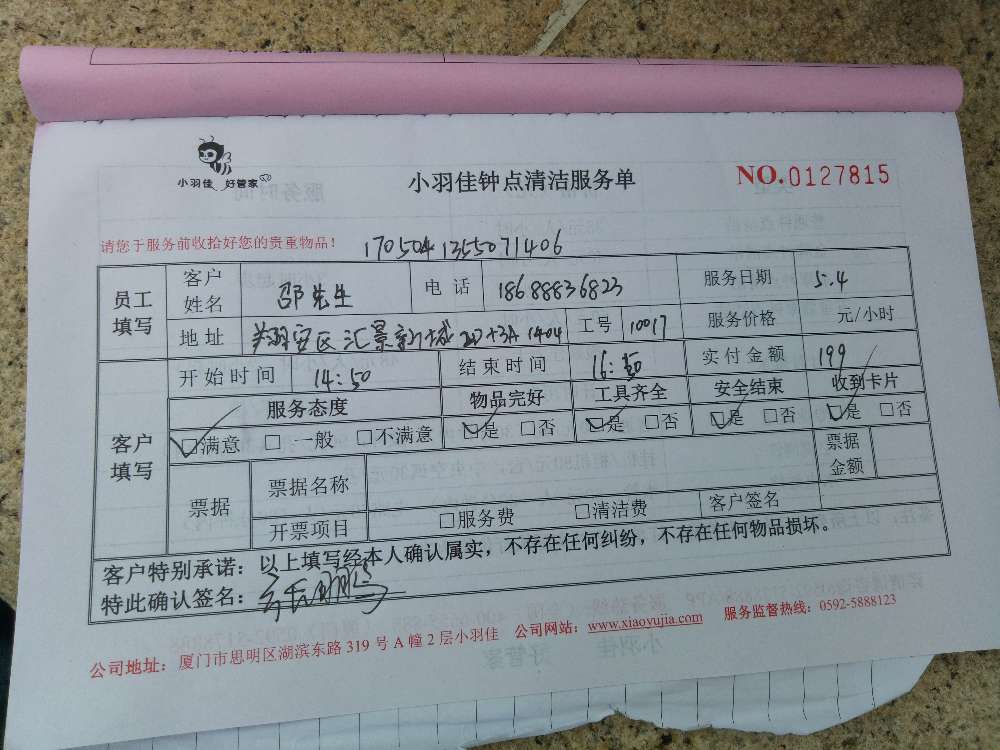 小羽佳 好管家
小羽佳钟点清洁服务单
NO.0127815
请您于服务前收拾好您的贵重物品！
1705041355071406
员工填写
客户姓名 邵先生 电话 18688836823 服务日期 5.4
地址 区汇景新城 1404 工号 10017 服务价格 元/小时
客户填写
开始时间 14:50 结束时间 16: 实付金额 199
服务态度 物品完好 工具齐全 安全结束 收到卡片
☑满意 □一般 □不满意 ☑是 □否 ☑是 □否 ☑是 □否 ☑是 □否
票据 票据名称 票据金额
开票项目 □服务费 □清洁费 客户签名
客户特别承诺：以上填写经本人确认属实，不存在任何纠纷，不存在任何物品损坏。
特此确认签名：
公司地址：厦门市思明区湖滨东路 319 号 A 幢 2 层小羽佳 公司网站：www.xiaoyujia.com 服务监督热线：0592-5888123